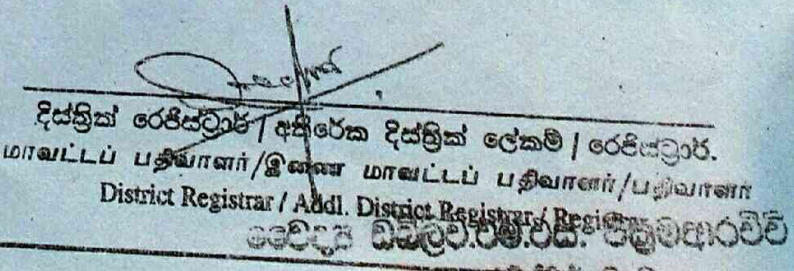 දිස්ත්‍රික් රෙජිස්ට්‍රාර් / අතිරේක දිස්ත්‍රික් ලේකම් / රෙජිස්ට්‍රාර්.
மாவட்டப் பதிவாளர்/இணை மாவட்டப் பதிவாளர்/பதிவாளர்
District Registrar / Addl. District Registrar / Registrar
වෛද්‍ය ඩබ්ලිව්.එම්.එස්. වික්‍රමආරච්චි